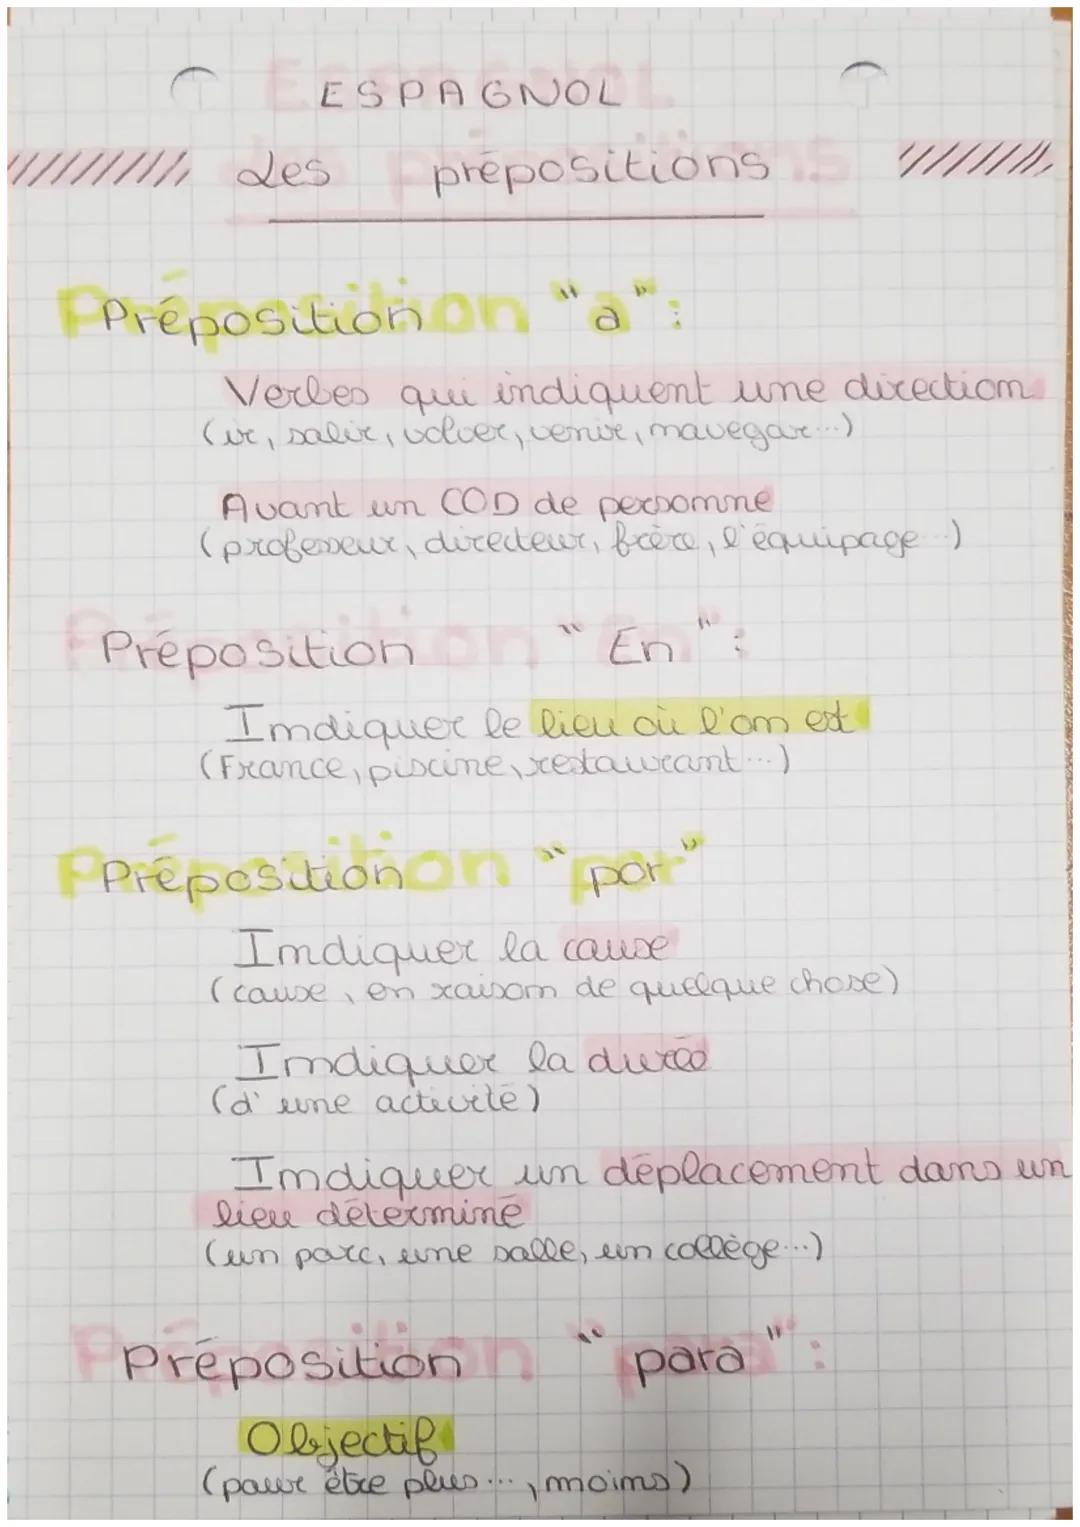 ESPAGNOL
Les prépositions
Préposition "a":
Verbes qui indiquent une direction
(ir, salir, volver, venir, navegar...)
Avant un COD de personne
(professeur, directeur, frère, l'équipage...)
Préposition "En":
Indiquer le lieu où l'on est
(France, piscine, restaurant...)
Préposition "por"
Indiquer la cause
(cause, en raison de quelque chose)
Indiquer la durée
(d'une activité)
Indiquer un déplacement dans un
lieu déterminé
(un parc, une salle, un collège...)
Préposition "para":
Objectif
(pour être plus..., moins)